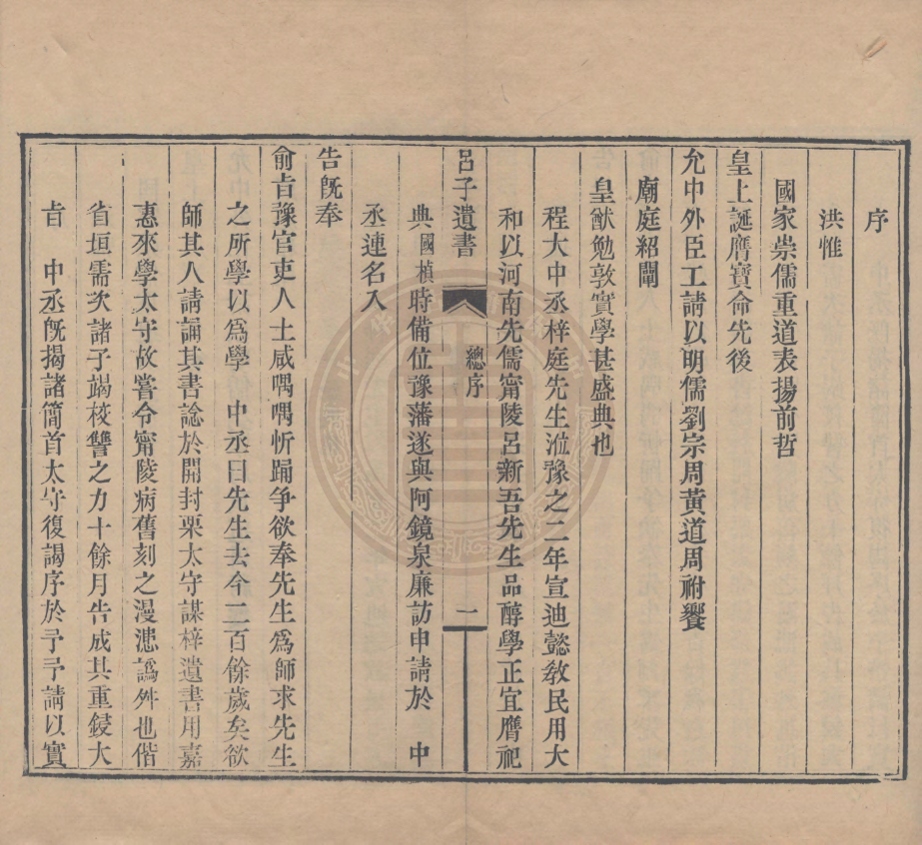 序
洪惟
國家崇儒重道表揚前哲
皇上誕膺寶命先後
允中外臣工請以明儒劉宗周黃道周祔饗
廟庭紹闡
皇猷勉敦實學甚盛典也
程大中丞梓庭先生涖豫之二年宣迪懿敎民用大
和以河南先儒甯陵呂新吾先生品醇學正宜膺祀
典國楨時備位豫藩遂與阿鏡泉廉訪申請於　中
丞連名入
呂子遺書
總序
一
告旣奉
俞旨豫官吏人士咸喁喁忻踊争欲奉先生爲師求先生
之所學以爲學　中丞曰先生去今二百餘歲矣欲
師其人請誦其書諗於開封栗太守謀梓遺書用嘉
惠來學太守故嘗令甯陵病舊刻之漫漶譌舛也偕
省垣需次諸子竭校讐之力十餘月告成其重鋟大
旨　中丞旣揭諸簡首太守復謁序於予予請以實